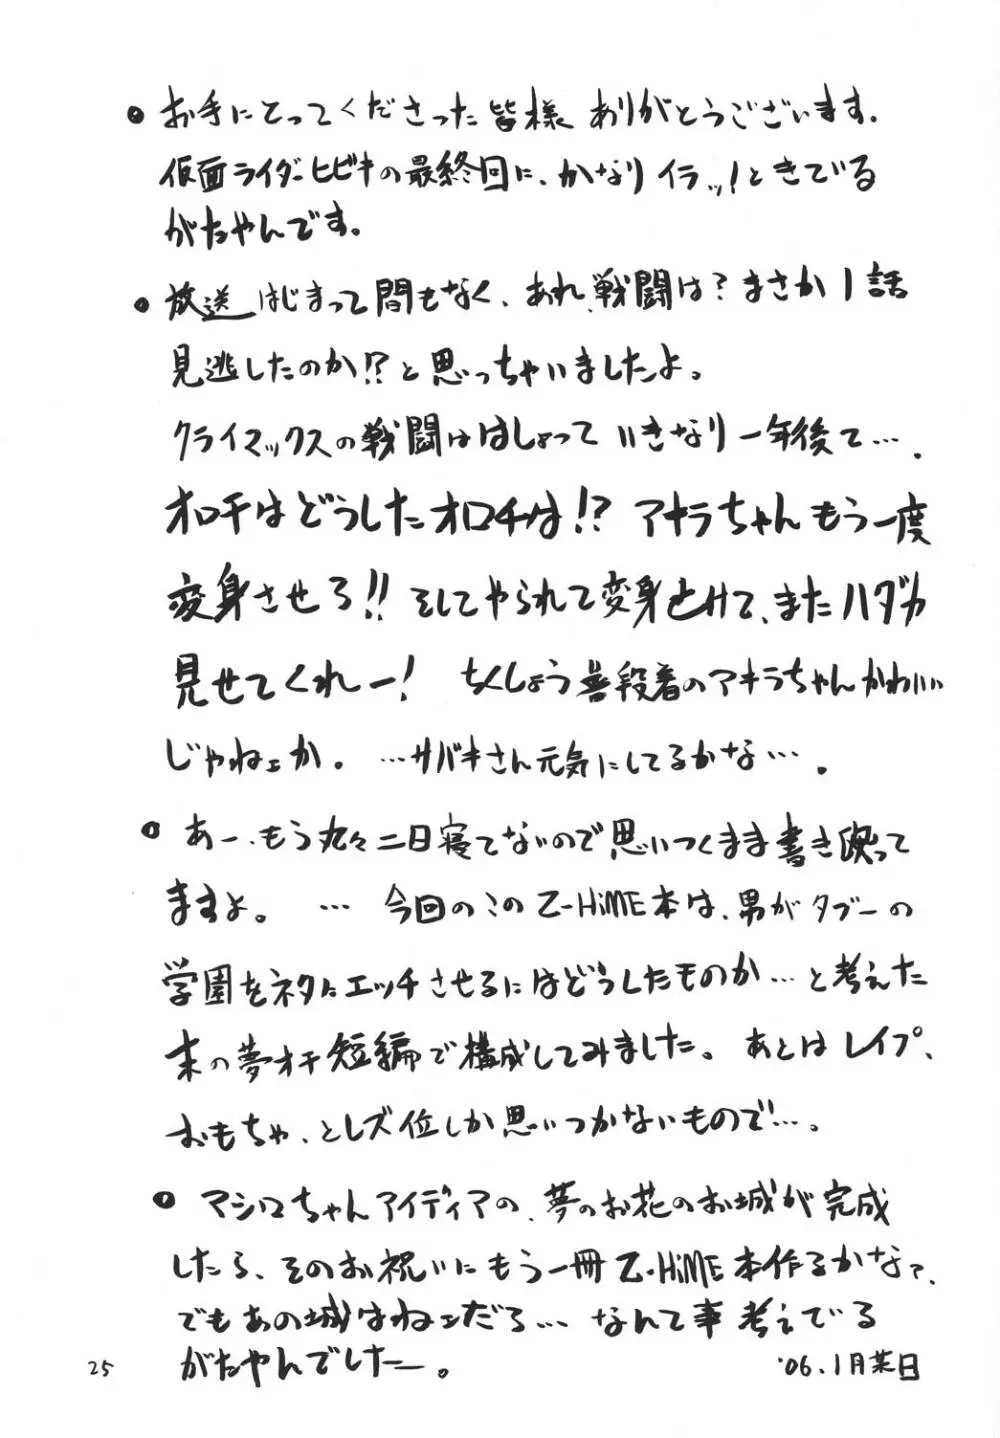 ・お手にとってくださった皆様ありがとうございます。
仮面ライダーヒビキの最終回に、かなりイラッ!ときでいる
がたやんです。
・放送はじまって間もなく、あれ、戦闘は?まさか1話
見逃したのか!?と思っちゃいましたよ。
クライマックスの戦闘ははしょっていきなり一年後て…。
オロチはどうしたオロチは!?アキラちゃんもう一度
変身させろ!!そしてやられて変身とけて、またハダカ
見せてくれー!ちくしょう普段着のアキラちゃんかわいい
じゃねェか。…サバキさん元気にしてるかな…。
・あー、もう丸々二日寝てないので思いつくまま書き殴って
ますよ。…今回のこのZ-HiME本は、男がタブーの
学園をネタにエッチさせるにはどうしたものか…と考えた
末の夢オチ短編で構成してみました。あとはレイプ、
おもちゃ、とレズ位しか思いつかないもので…。
・マシロちゃんアイディアの、夢のお花のお城が完成
したら、そのお祝いにもう一冊Z・HiME本作るかなァ、
でもあの城はねェだろ…なんて事考えでいる
がたやんでしたー。
25
'06.1月某日